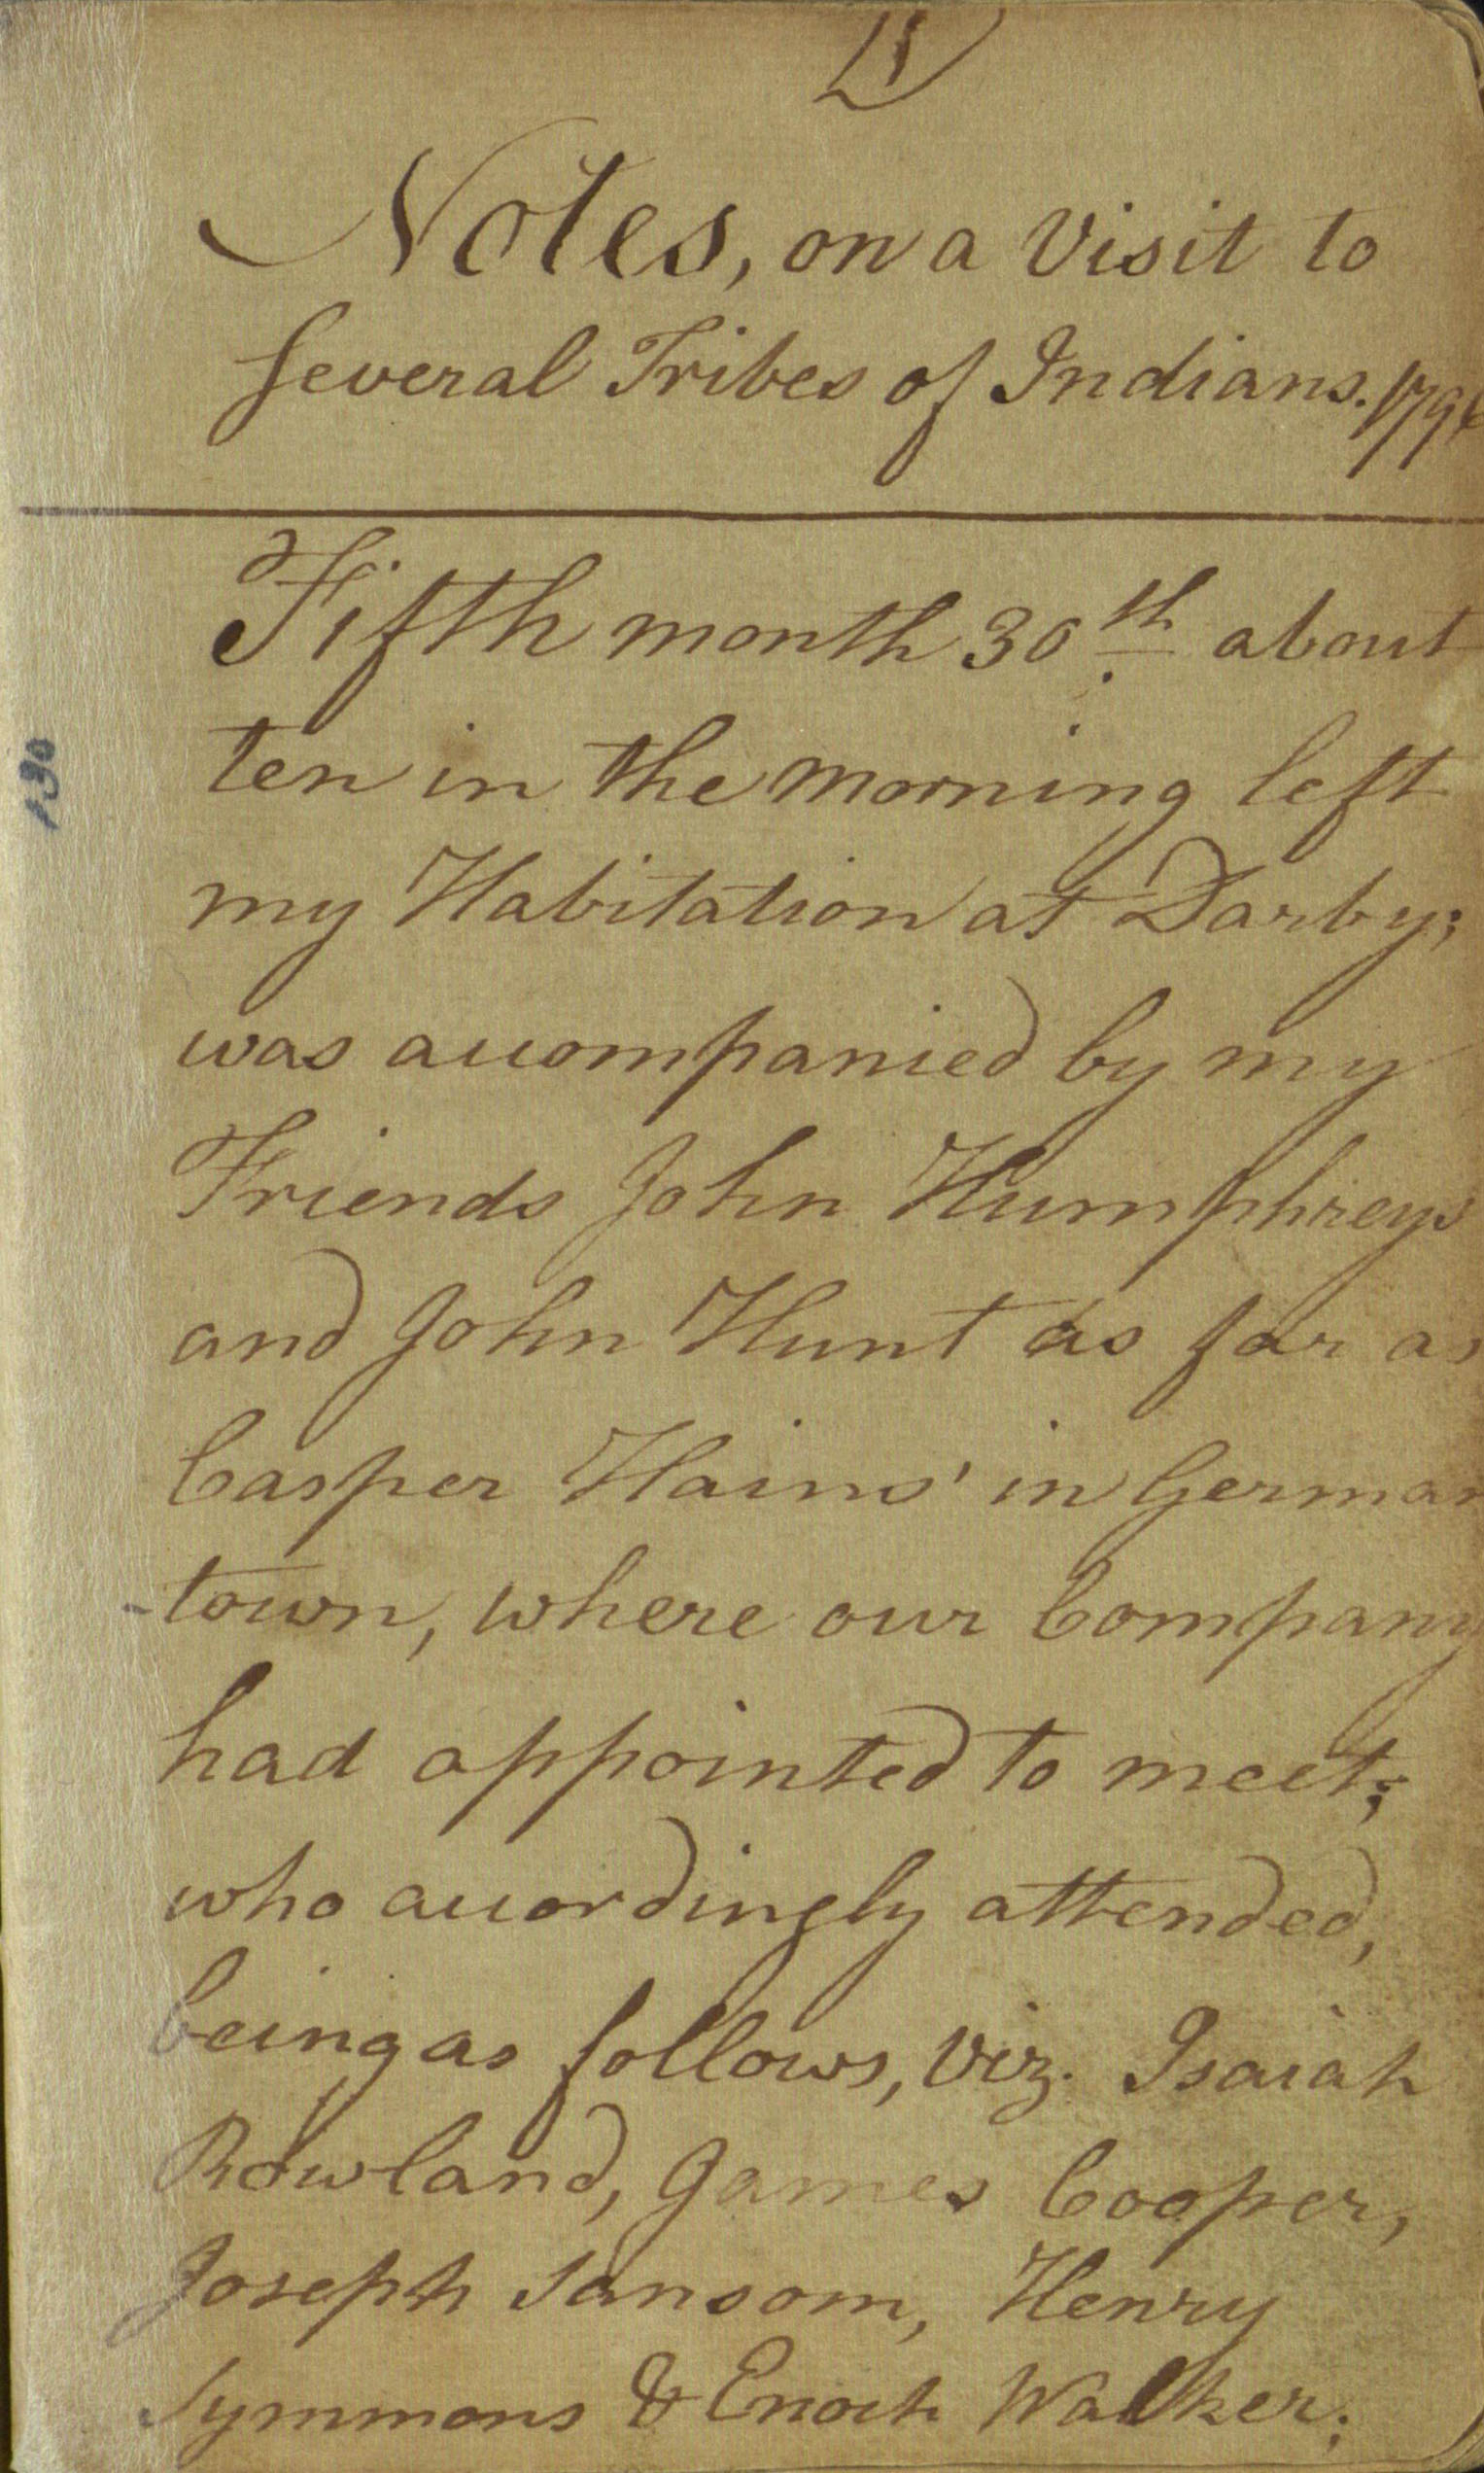 1
Notes, on a Visit to
several Tribes of Indians. 1796
Fifth month 30th about
ten in the morning left
my Habitation at Darby;
was accompanied by my
Friends John Humphreys
and John Hunt as far as
Casper Hains' in German
-town, where our Company
had appointed to meet;
who accordingly attended,
being as follows, Viz. Isaiah
Rowland, James Cooper,
Joseph Sansom, Henry
Symmons & Enoch Walker;
130